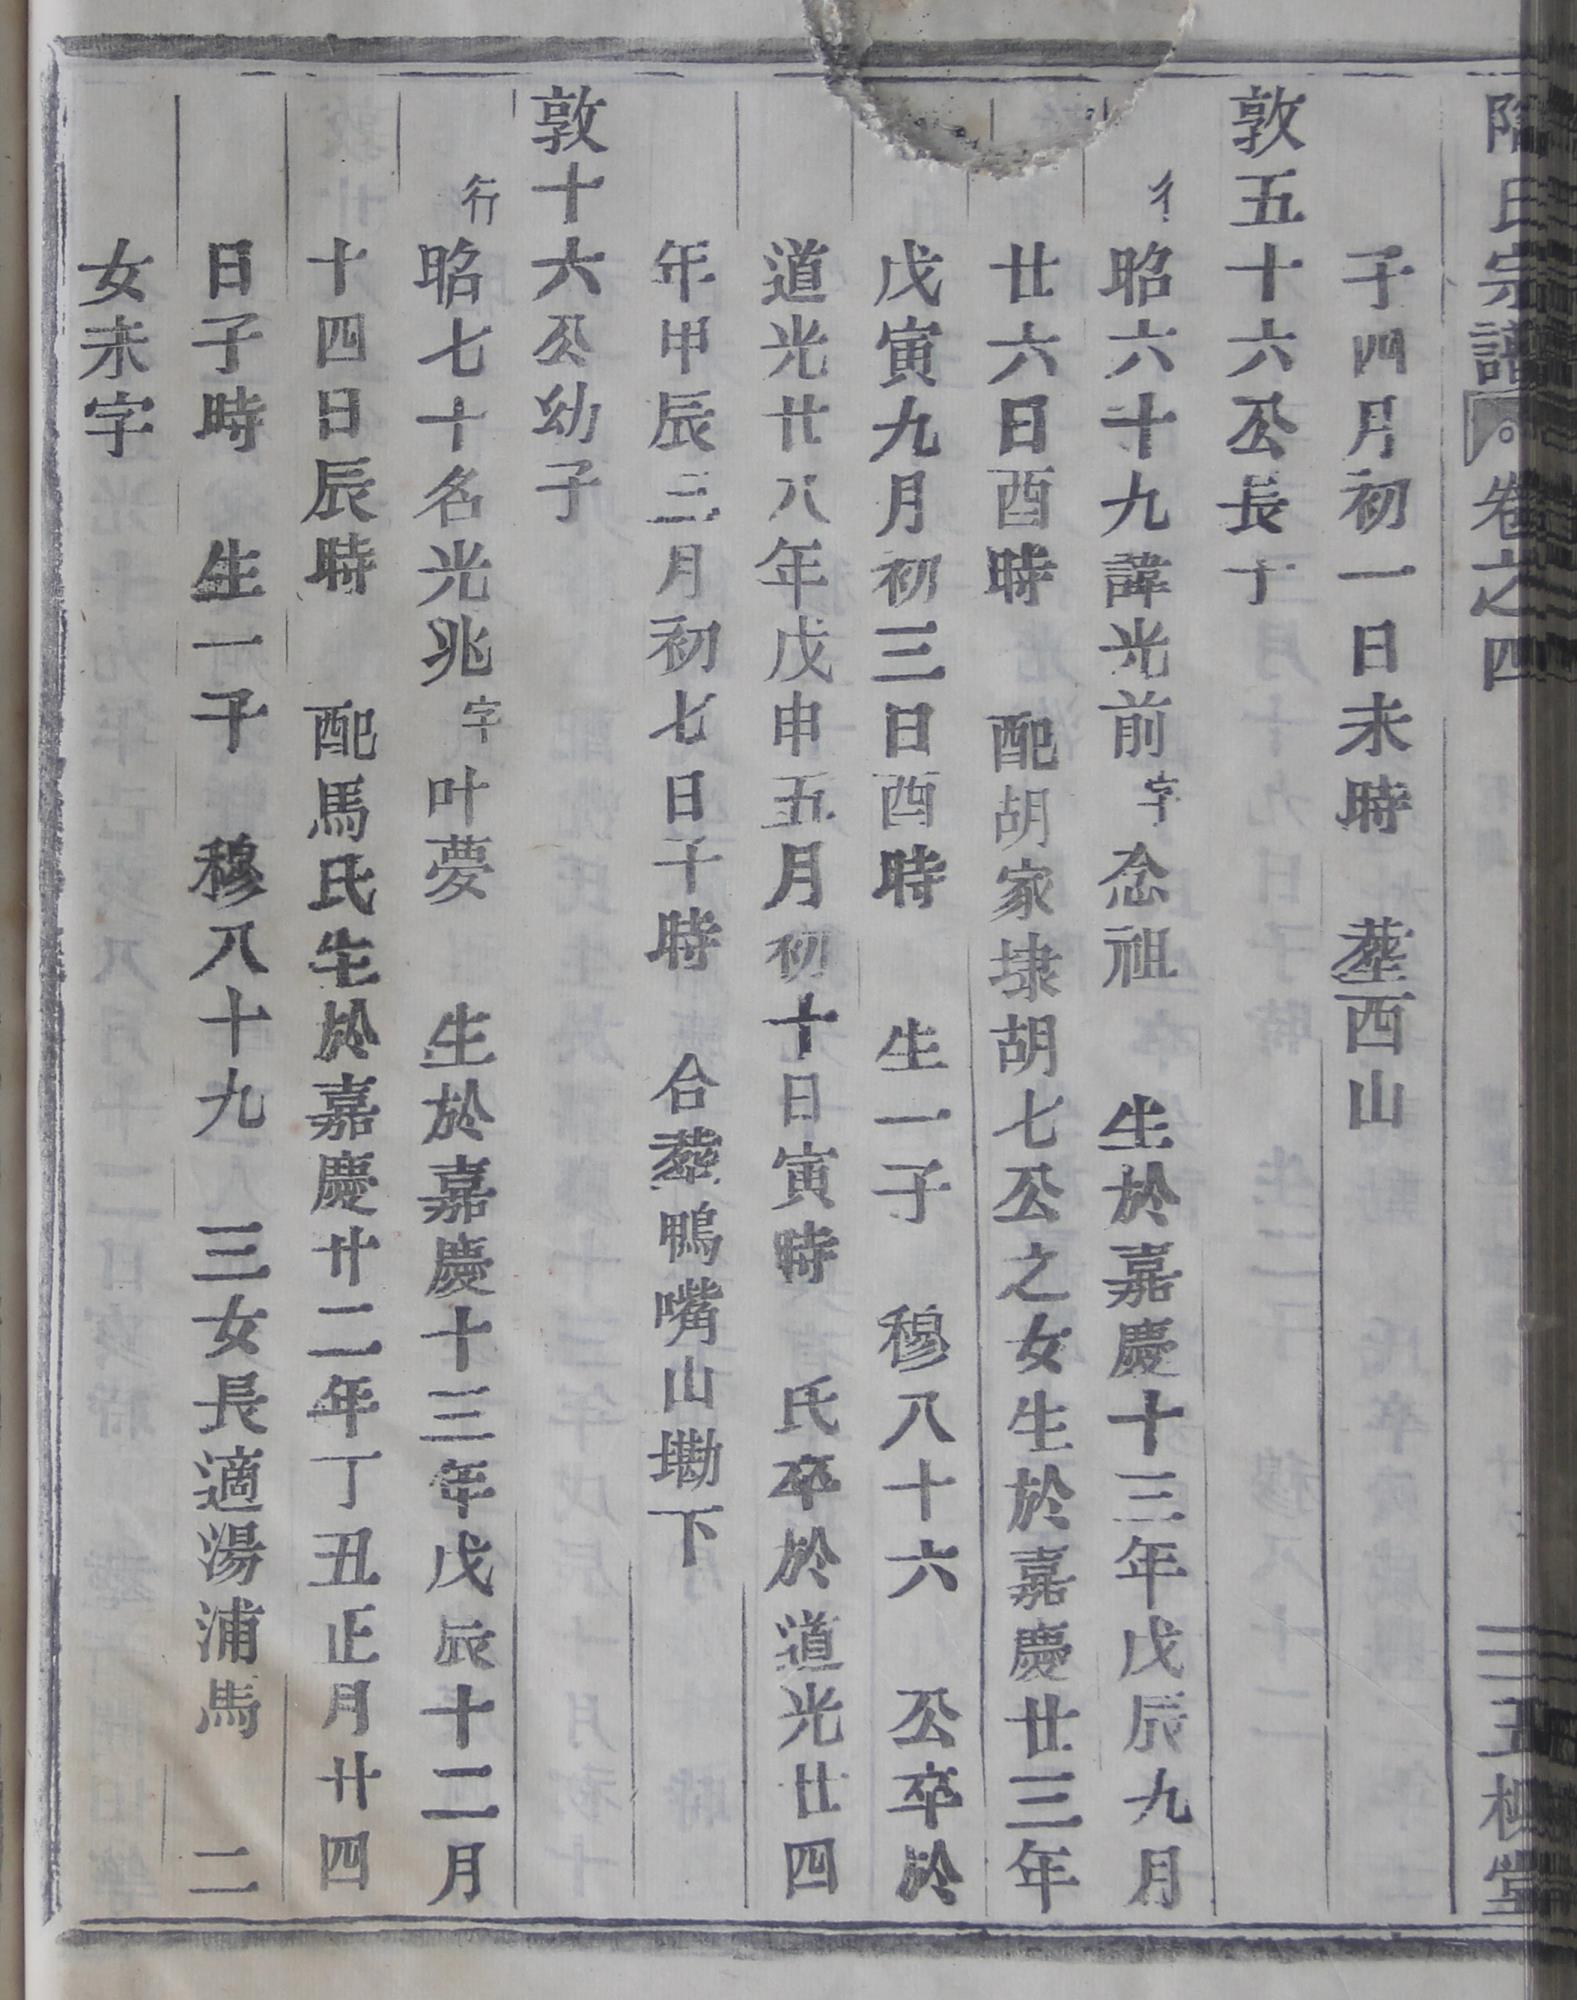 陶氏宗譜 卷之四 三 五柳堂
子四月初一日未時 葬西山
敦五十六公長子
行昭六十九諱光前字念祖 生於嘉慶十三年戊辰九月
廿六日酉時 配胡家埭胡七公之女生於嘉慶廿三年
戊寅九月初三日酉時 生一子 穆八十六 公卒於
道光廿八年戊申五月初十日寅時 氏卒於道光廿四
年甲辰三月初七日子時 合葬鴨嘴山墈下
敦十六公幼子
行昭七十名光兆字叶夢 生於嘉慶十三年戊辰十二月
十四日辰時 配馬氏生於嘉慶廿二年丁丑正月廿四
日子時 生一子 穆八十九 三女長適湯浦馬 二
女未字